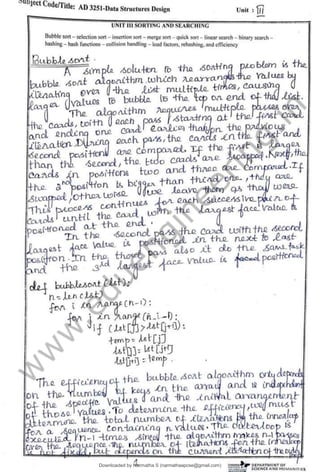 Subject Code/Title: AD 3251-Data Structures Design Unit : III
UNIT III SORTING AND SEARCHING
Bubble sort – selection sort – insertion sort – merge sort – quick sort – linear search – binary search –
hashing – hash functions – collision handling – load factors, rehashing, and efficiency
Bubble sort.
A simple solution to the sorting problem is the
bubble sort algorithm which rearranges the values by
iterating over the list multiple times, causing
larger values to bubble to the top or end of the list.
The algorithm requires multiple passes over
the cards, with each pass starting at the first card
and ending one card earlier than on the previous
iteration. During each pass, the cards in the first and
second positions are compared. If the first is larger
than the second, the two cards are swapped. Next, the
cards in positions two and three are compared. If
the 2nd position is bigger than third one, they are
swapped, otherwise we leave them as they were.
This process continues for each successive pair of
cards until the card with the largest face value is
positioned at the end.
In the second pass the card with the second
largest face value is positioned in the next to last
position. In the third pass also it do the same task
and the 3rd largest face value is positioned
def bubblesort(list):
n = len(list)
for i in range(n-1):
for j in range(n-i-1):
if (list[j] > list[j+1]):
temp = list[j]
list[j] = list[j+1]
list[j+1] = temp.
The efficiency of the bubble sort algorithm only depends
on the number of keys in the array and is independent
of the specific values and the initial arrangement
of those values. To determine the efficiency, we must
determine the total number of iterations by the inner loop
for a sequence containing n values. The outer loop is
executed n-1 times since the algorithm makes n-1 passes
over the sequence. The number of iterations for the inner loop
is not fixed, but depends on the current iteration of the
www.eduengineering.in
Downloaded by
DEPARTMENT OF
SCIENCE AND HUMANITIES